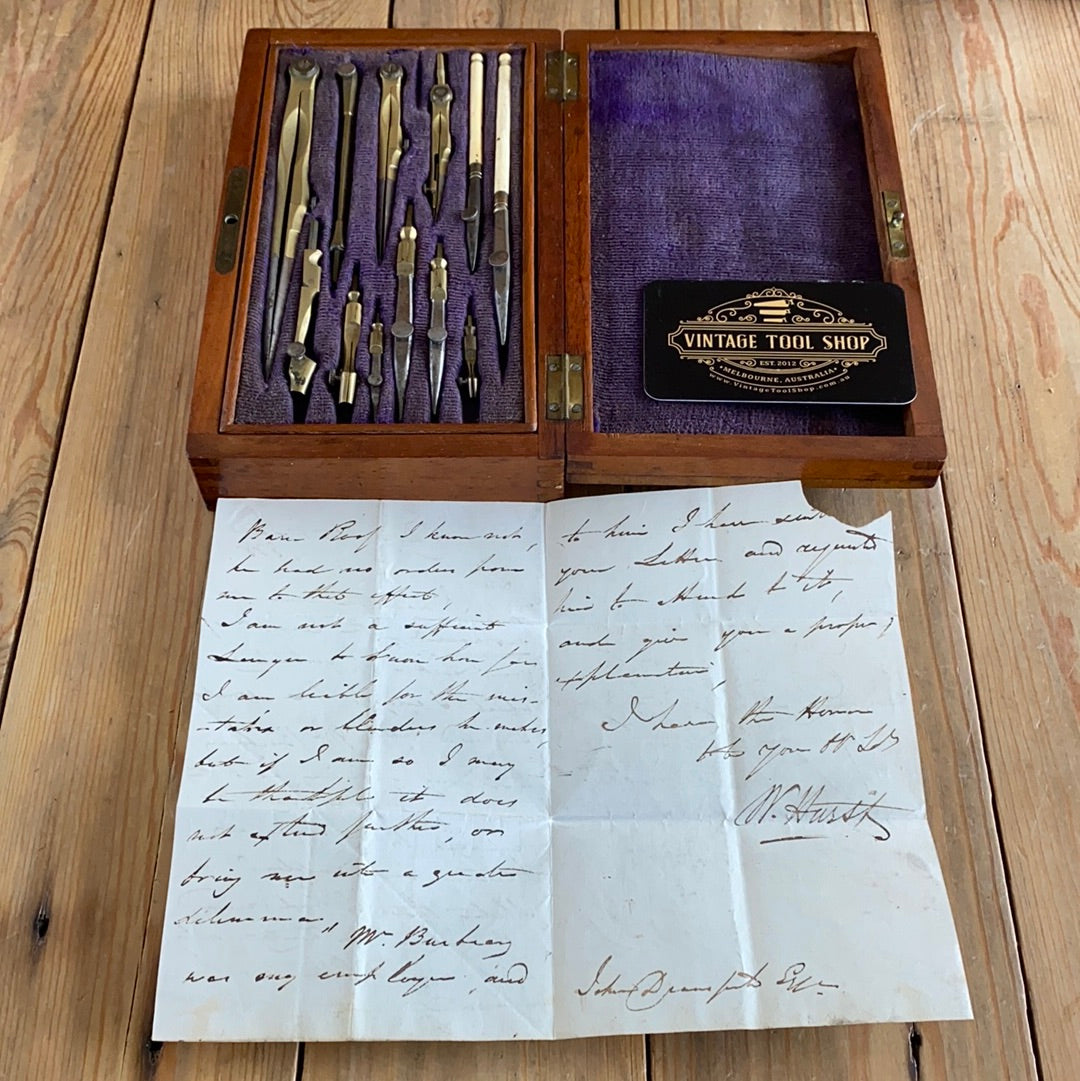 VINTAGE TOOL SHOP
EST. 2012
• MELBOURNE, AUSTRALIA •
www.VintageToolShop.com.au
I know not,
he had no orders from
me to that effect,
I am not a sufficient
Lawyer to know how far
I am liable for the mis-
-takes or blunders he makes,
but if I am so I may
be thankful it does
not extend further, or
bring me into a greater
dilemma,
Mr.
was my employer, and
to him I have sent
your Letter and requested
him to attend to it,
and give you a proper
explanation,
I have the Honor
to be your
W. Hurst
John Esqr